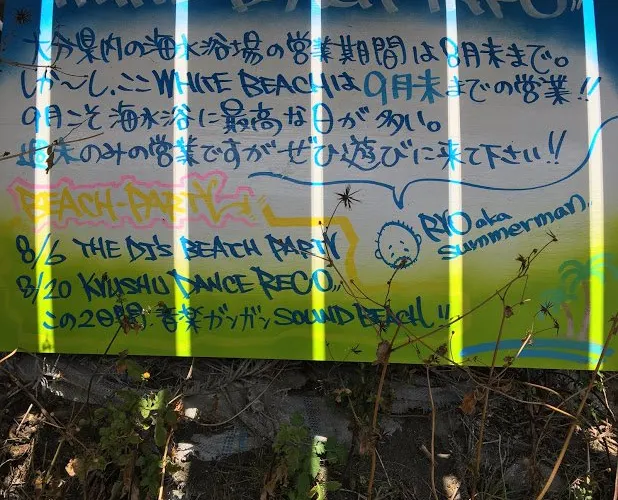 大分県内の海水浴場の営業期間は8月末まで。
しか〜し、ここWHITE BEACHは9月末までの営業!!
9月こそ海水浴に最高な日が多い。
週末のみの営業ですがぜひ遊びに来て下さい!!
BEACH-PARTY
RYO aka
summerman
8/6 THE DJ's BEACH PARTY
8/20 KYUSHU DANCE RECO
この2日間、音楽ガンガンSOUND BEACH!!